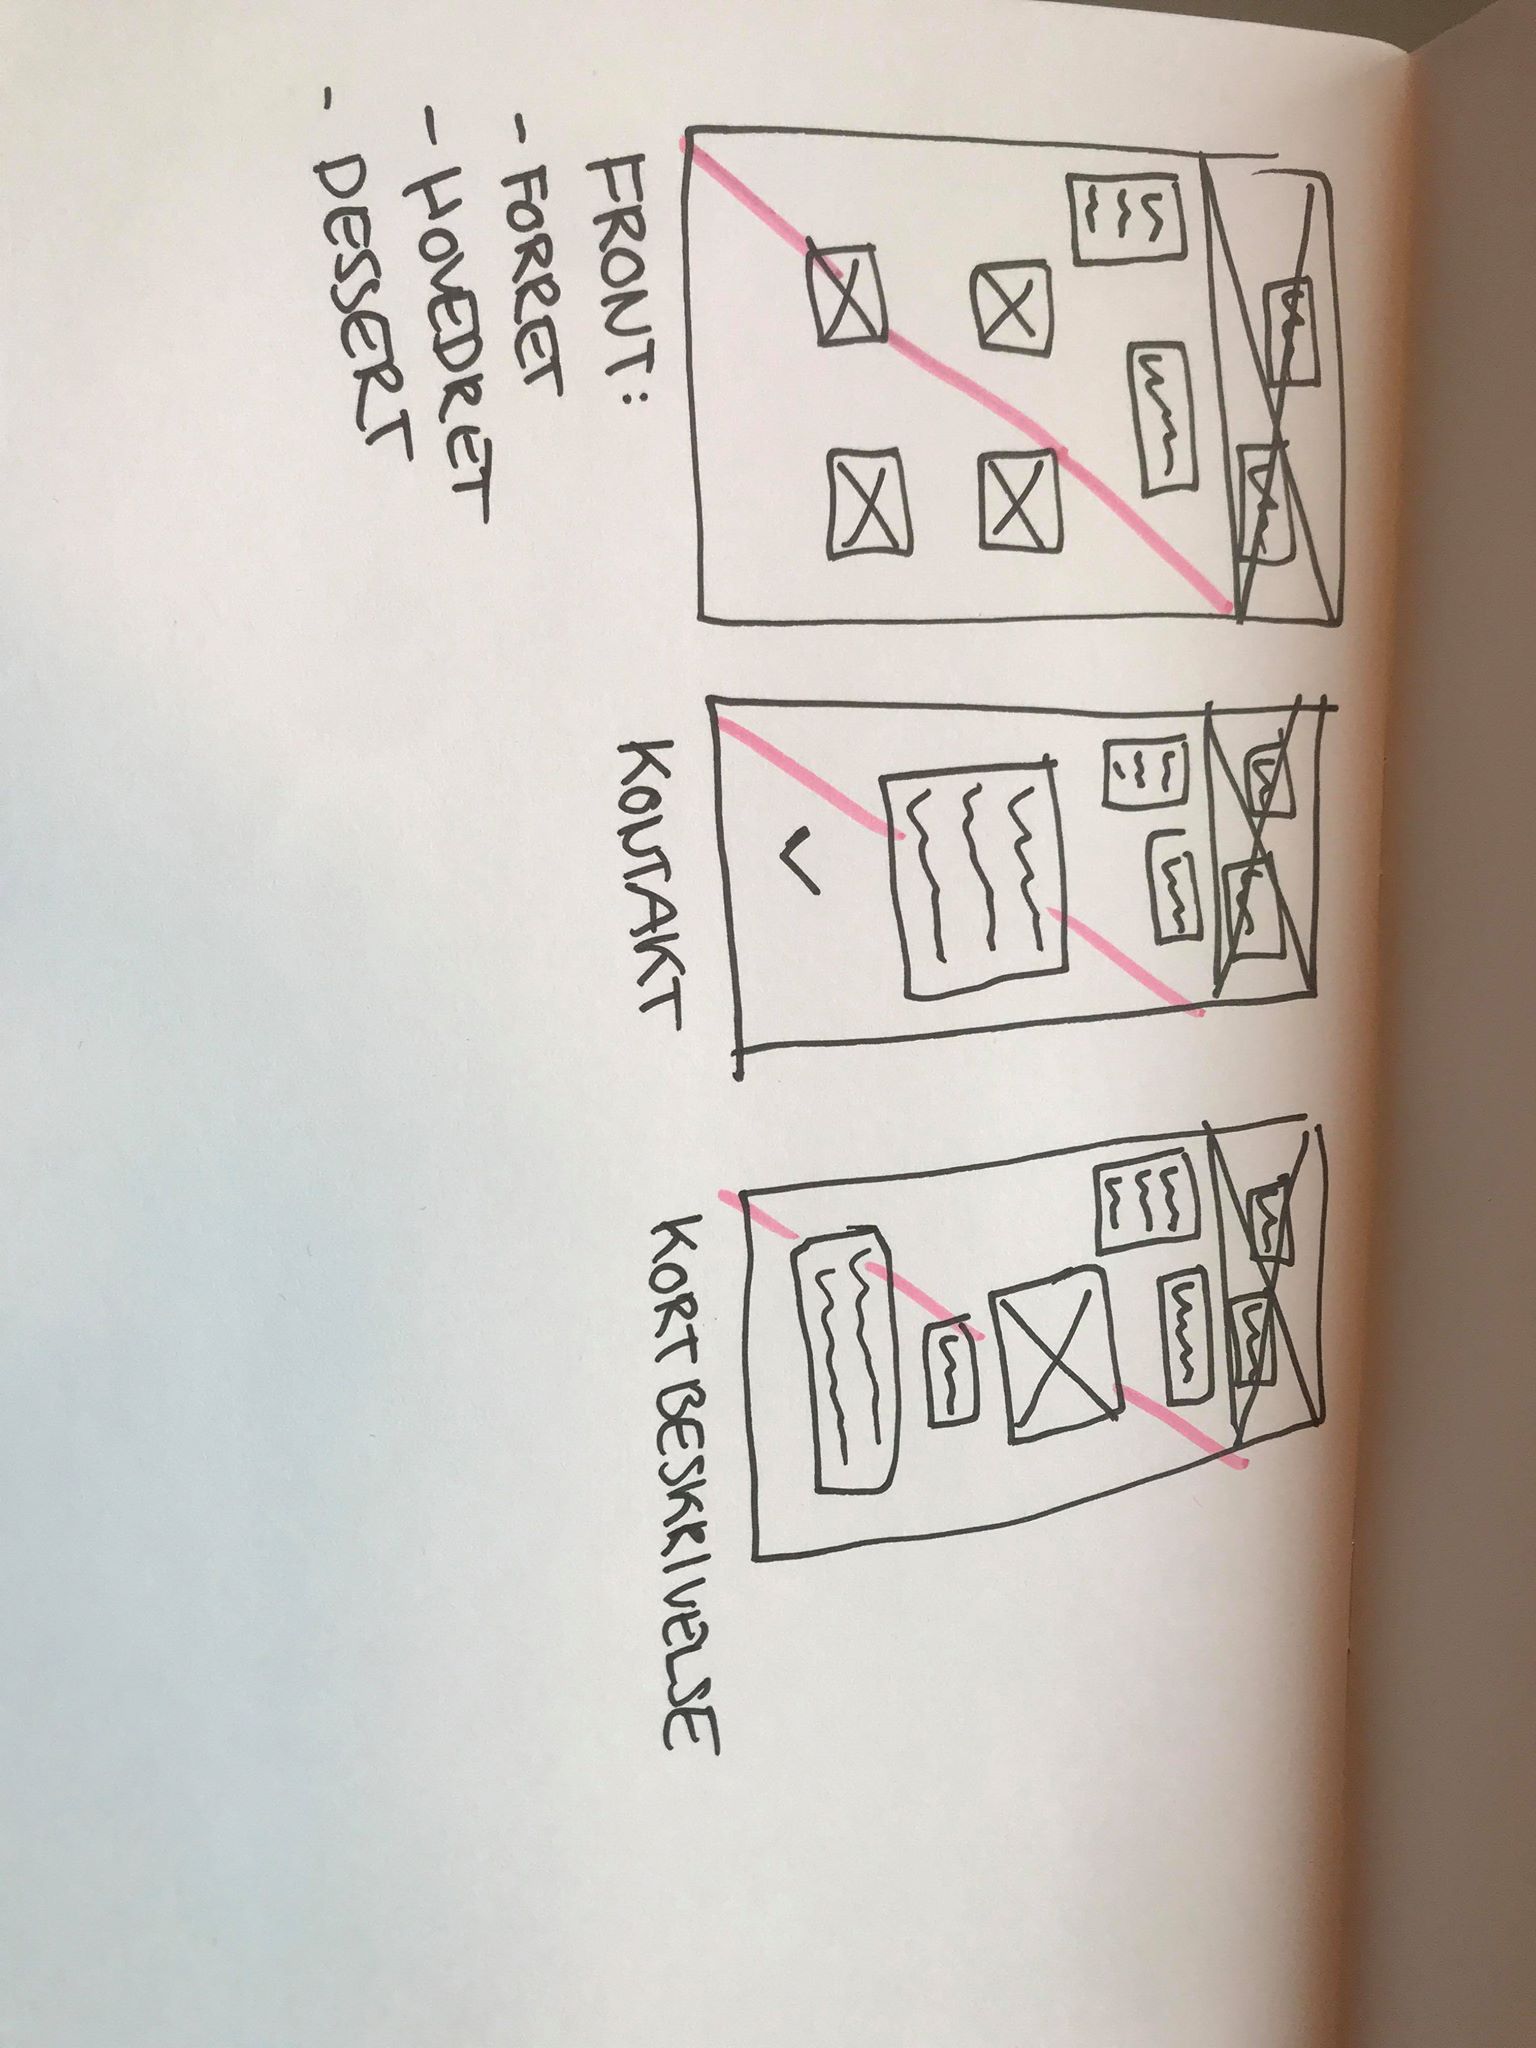 FRONT:
- FORRET
- HOVEDRET
- DESSERT
KONTAKT
KORT BESKRIVELSE